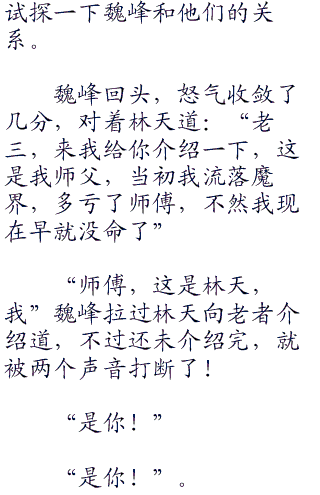 试探一下魏峰和他们的关
系。
魏峰回头，怒气收敛了
几分，对着林天道：“老
三，来我给你介绍一下，这
是我师父，当初我流落魔
界，多亏了师傅，不然我现
在早就没命了”
“师傅，这是林天，
我”魏峰拉过林天向老者介
绍道，不过还未介绍完，就
被两个声音打断了！
“是你！”
“是你！”。